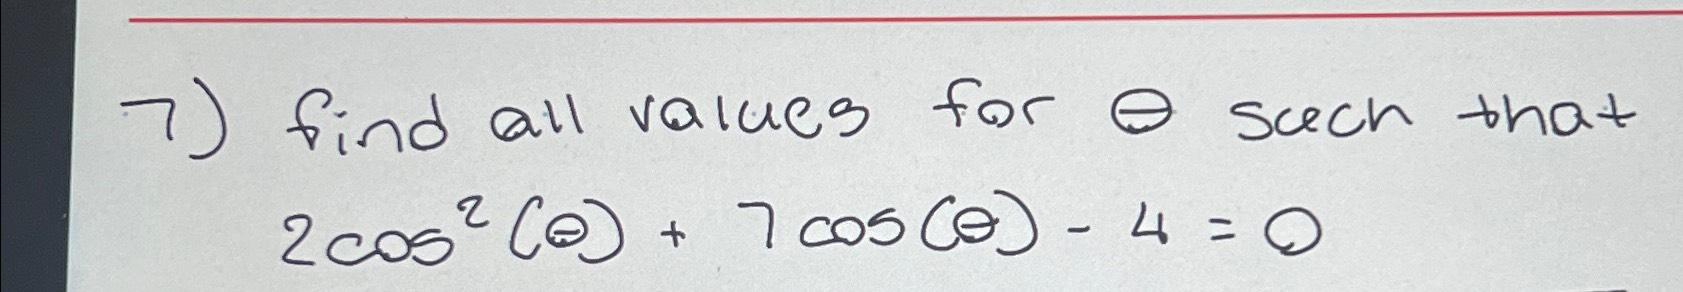 7) find all values for θ such that
2cos²(θ) + 7cos(θ) - 4 = 0